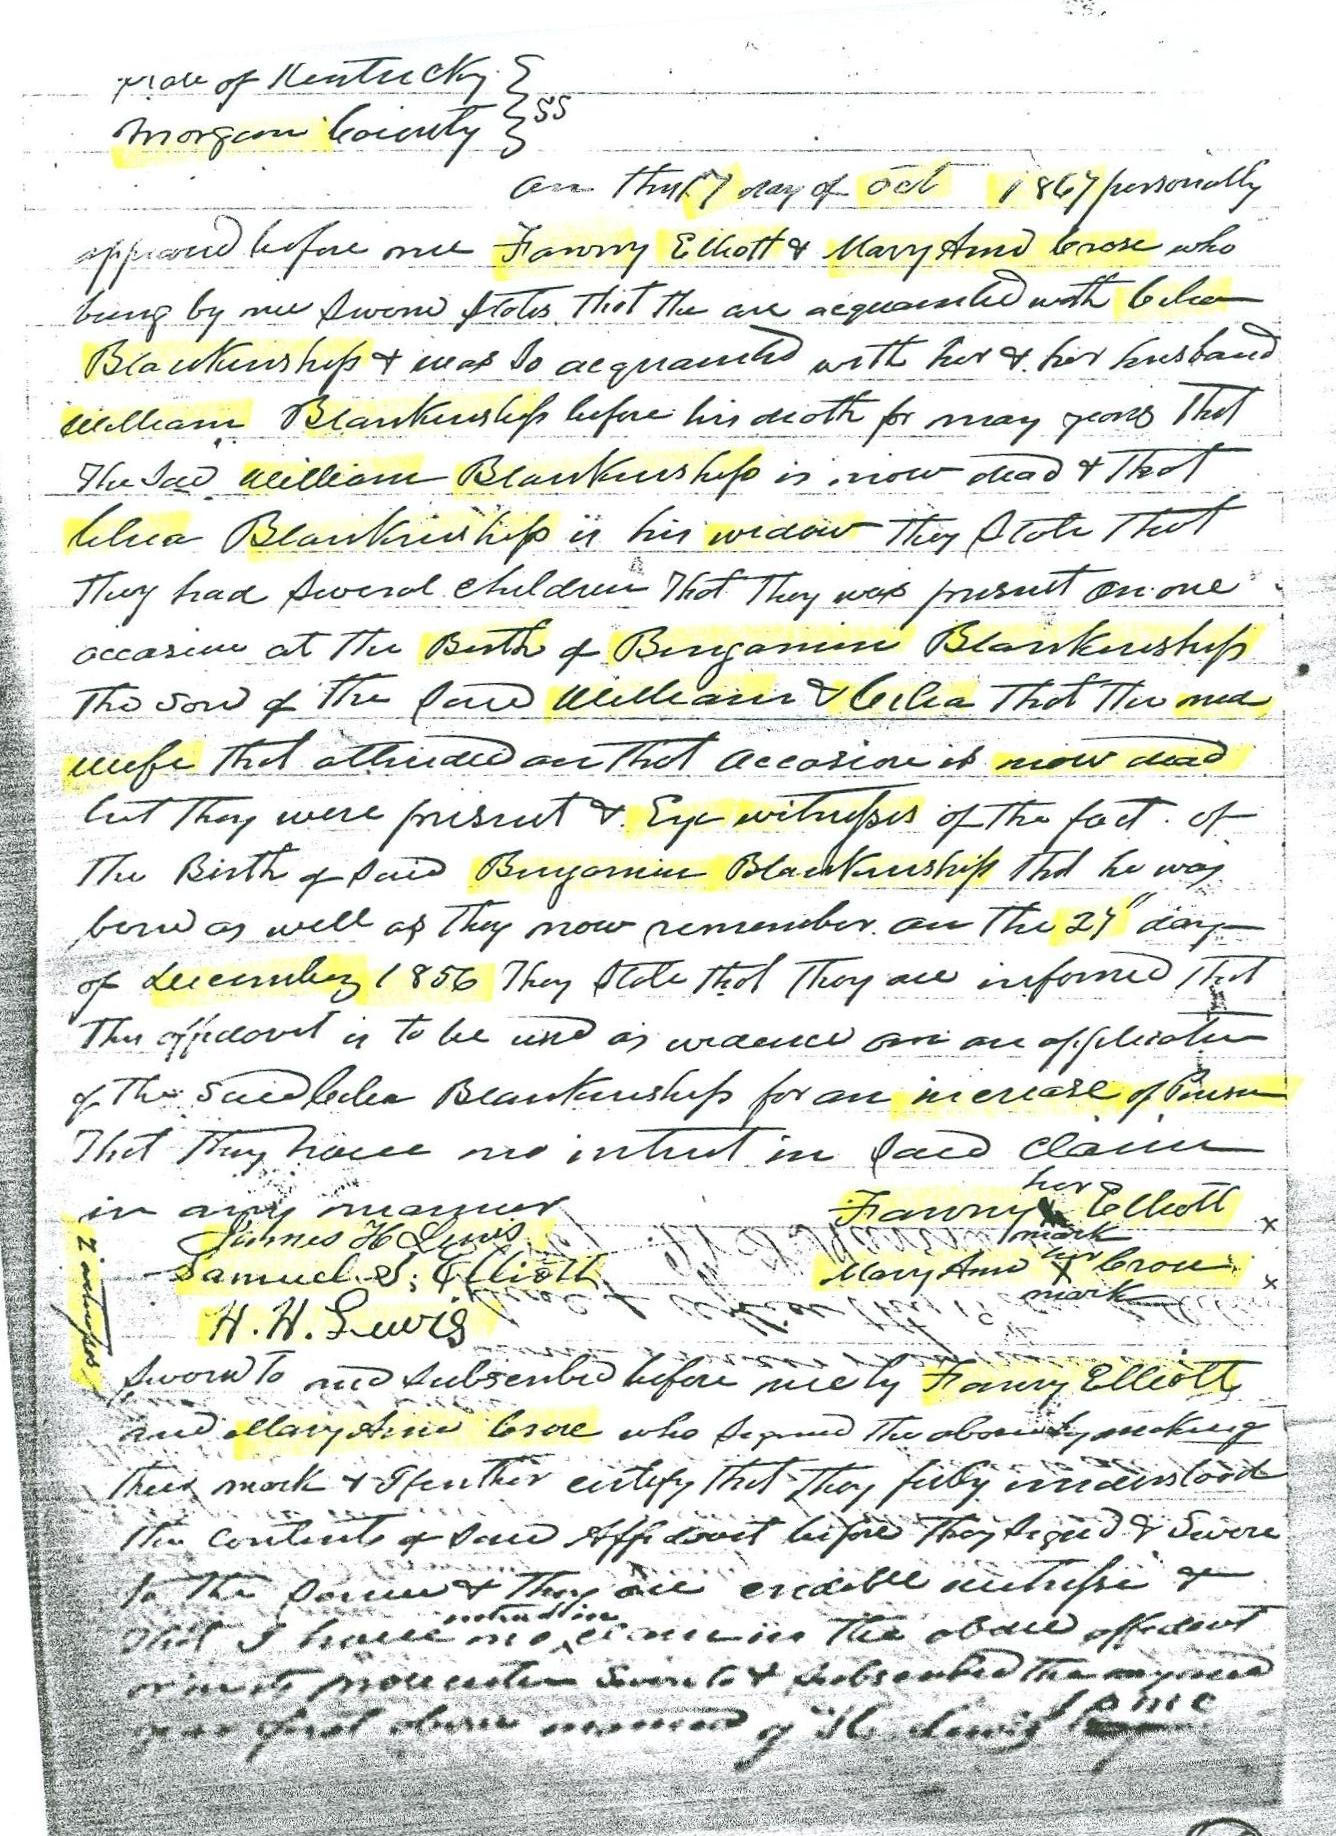 State of Kentucky }
Morgan County } SS
On this 17 day of Oct 1867 personally
appeared before me Fanny Elliott & Mary Ann Crose who
being by me Sworn States that the are acquainted with Celia
Blankinship & was So acquainted with her & her husband
William Blankenship before his death for many years that
the Said William Blankenship is now dead & that
Celia Blankinship is his widow they State that
They had Several Children That They was present on one
occasion at the Birth of Bengamin Blankenship
The Son of the Said William & Celia that the mid
wife that attended on that occasion is now dead
but they were present & Eye witnesses of the fact of
The Birth of Said Bengamin Blankenship that he was
born as well as they now remember on the 27" day
of December 1856 They State that they are informed that
This affidavit is to be used as evidence on an application
of the Said Celia Blankenship for an increase of Pension
That they have no intrest in Said Claim
in any manner
her
Fanny X Elliott x
mark
James H Lewis
Samuel S. Elliott
her
Mary Ann X Crose x
mark
H. H. Lewis
2 witnesses
Sworn to and Subscribed before me by Fanny Elliott
and Mary Ann Crose who Signed the above by making
their mark & I further certify that they fully understood
the Contents of Said Affidavit before they Signed & Swore
to the Same & they are credible witnesses &
that I have no in the above affidavit
or in its prosecution Sworn to & Subscribed the day and
year first above Lewis